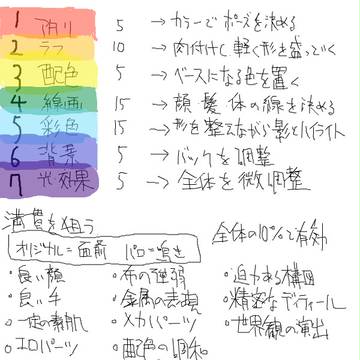 1 アタリ 5 →カラーでポーズを決める
2 ラフ 10 →肉付けし軽く形を盛っていく
3 配色 5 →ベースになる色を置く
4 線画 15 →顔、髪、体の線を決める
5 彩色 15 →形を整えながら影とハイライト
6 背景 5 →バックを調整
7 光効果 5 →全体を微調整
満費を狙う
オリジナル=面前 パロ=鳴き
全体の10%で有効
・良い顔
・良い手
・一定の素肌
・エロパーツ
・布の強弱
・金属の表現
・メカパーツ
・配色の調和
・迫力ある構図
・精密なディティール
・世界観の演出